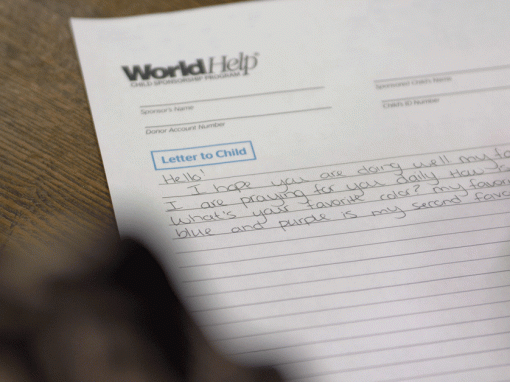 World Help
CHILD SPONSORSHIP PROGRAM
Sponsor's Name
Sponsored Child's Name
Donor Account Number
Child's ID Number
Letter to Child
Hello!
I hope you are doing well my fa
I are praying for you daily How
What's your favorite color? my favor
blue and purple is my second favo